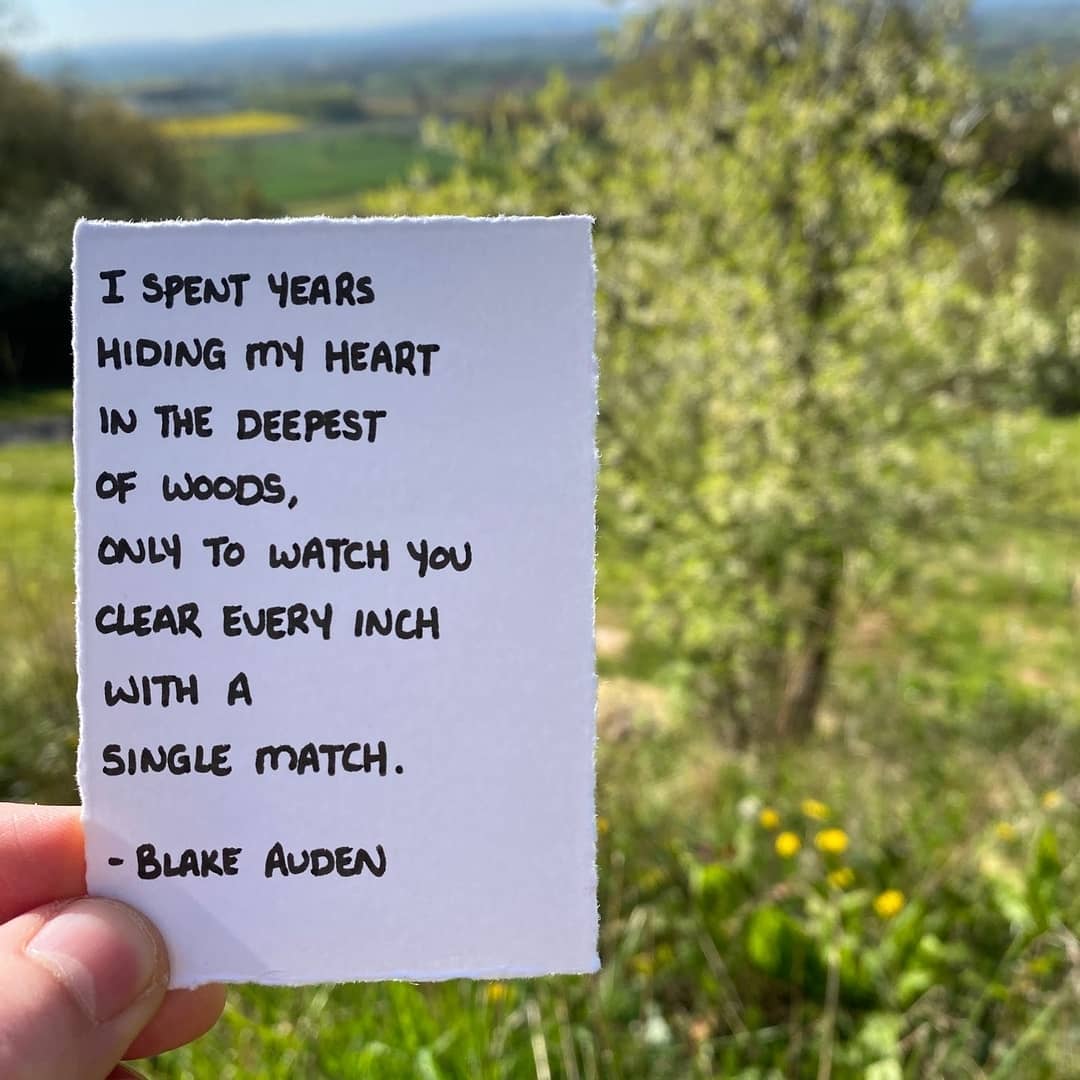 I SPENT YEARS
HIDING MY HEART
IN THE DEEPEST
OF WOODS,
ONLY TO WATCH YOU
CLEAR EVERY INCH
WITH A
SINGLE MATCH.
- BLAKE AUDEN